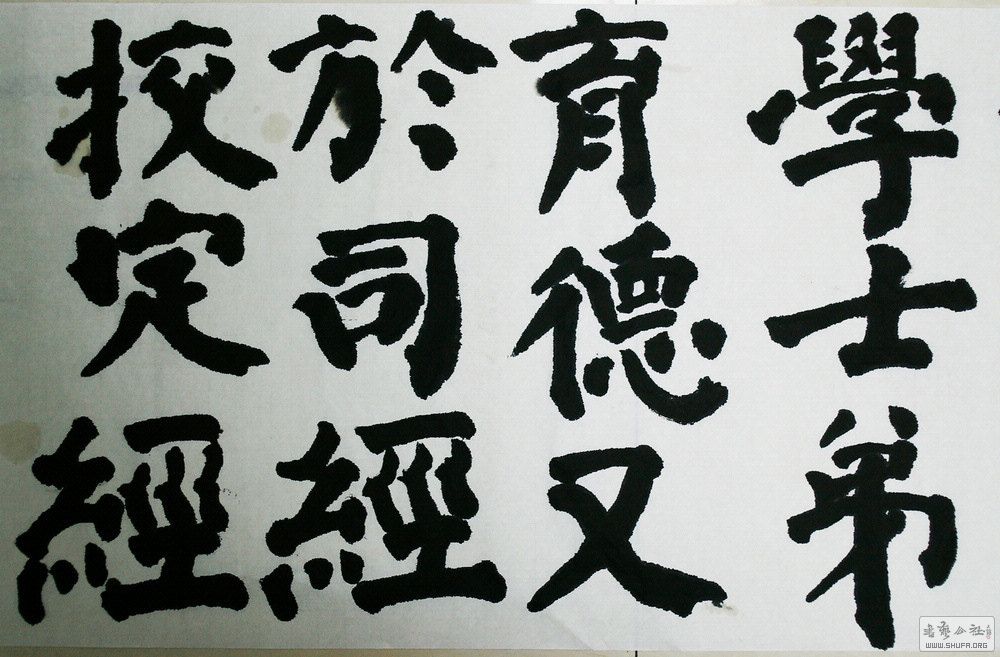 學士弟
育德又
於司經
挍定經
书艺公社
WWW.SHUFA.ORG